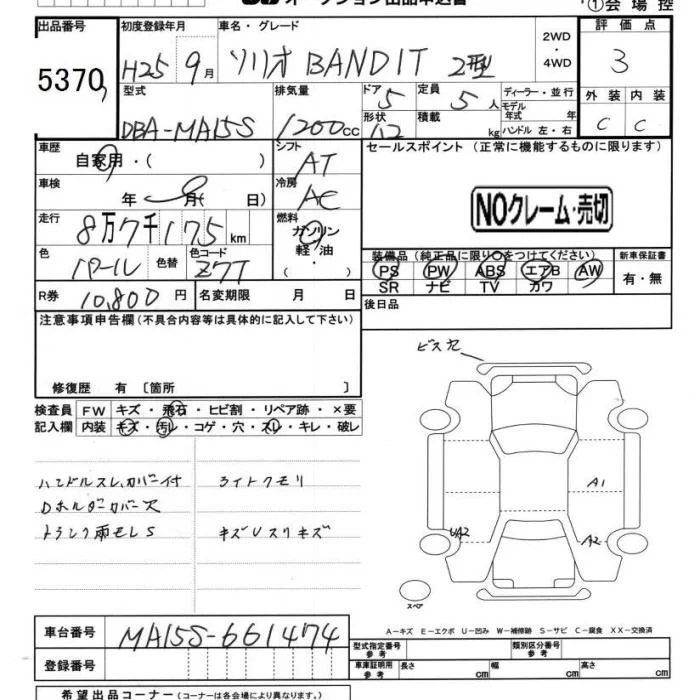 オークション出品申込書
①会場控
出品番号 初度登録年月 車名・グレード 2WD・4WD 評価点
5370 H25 9月 ソリオ BANDIT 2型 3
型式 排気量 ドア 5 定員 5人 ディーラー・並行 外装 内装
DBA-MA15S 1200cc 形状 積載 kg モデル年式 年 ハンドル 左・右 C C
車歴 自家用・( ) シフト AT セールスポイント (正常に機能するものに限ります)
車検 年 月( 日) 冷房 AC
NOクレーム・売切
走行 8万7千175km 燃料 ガソリン 軽・油 (・)
色 パール 色替 色コード Z7T
装備品(純正品に限り○をつけてください) 新車保証書
PS PW ABS エアB AW 有・無
SR ナビ TV カワ
R券 10,800円 名変期限 月 日 後日品
注意事項申告欄(不具合内容等は具体的に記入して下さい)
修復歴 有 〔箇所 〕
検査員 FW キズ・飛石・ヒビ割・リペア跡・×要
記入欄 内装 キズ・汚レ・コゲ・穴・スレ・キレ・破レ
ハンドルスレ、カバー付 ライトクモリ
Dホルダーカバー欠
トランク雨モレS キズUスリキズ
ビス穴
A1
UA2 A2
スペア
A-キズ E-エクボ U-凹み W-補修跡 S-サビ C-腐食 XX-交換済
車台番号 MA15S-661474 型式指定番号 参考 類別区分番号 参考
登録番号 車庫証明用 参考 長さ cm 幅 cm 高さ cm
希望出品コーナー(コーナーは各会場により異なります。)